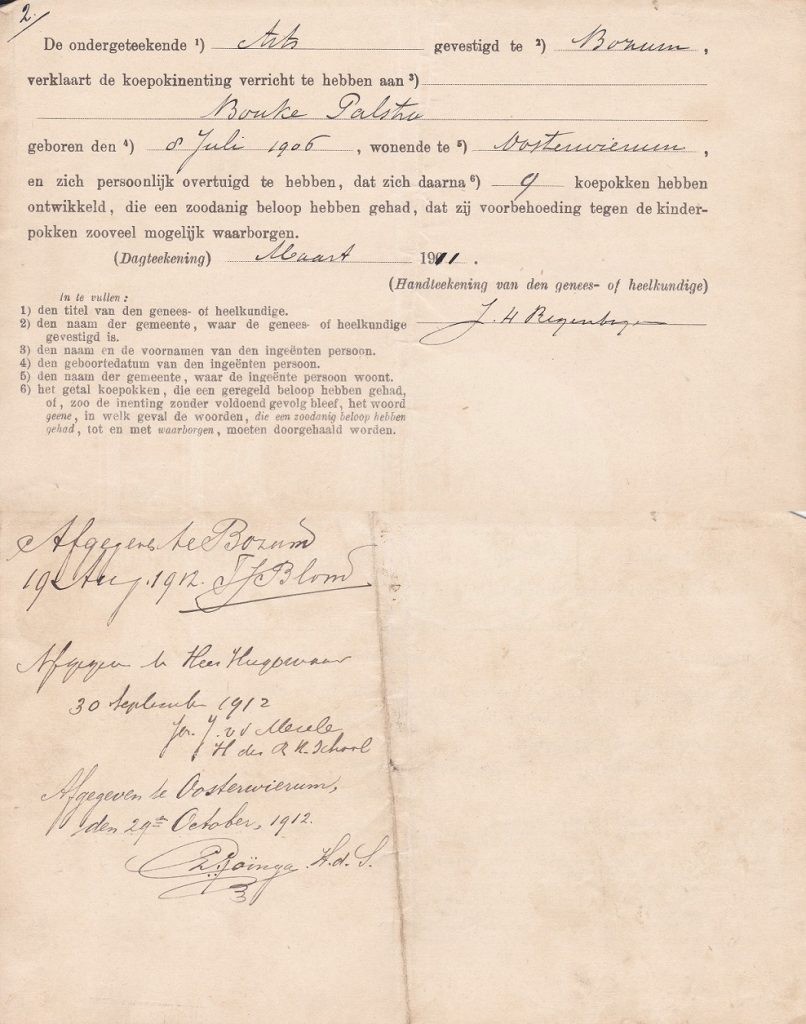 2.
De ondergeteekende ¹) Arts gevestigd te ²) Bozum,
verklaart de koepokinenting verricht te hebben aan ³)
Bouke Palstra
geboren den ⁴) 8 Juli 1906, wonende te ⁵) Oosterwierum,
en zich persoonlijk overtuigd te hebben, dat zich daarna ⁶) 9 koepokken hebben
ontwikkeld, die een zoodanig beloop hebben gehad, dat zij voorbehoeding tegen de kinder-
pokken zooveel mogelijk waarborgen.
(Dagteekening) Maart 1911.
(Handteekening van den genees- of heelkundige)
J. H Regenbogen
In te vullen:
1) den titel van den genees- of heelkundige.
2) den naam der gemeente, waar de genees- of heelkundige
gevestigd is.
3) den naam en de voornamen van den ingeënten persoon.
4) den geboortedatum van den ingeënten persoon.
5) den naam der gemeente, waar de ingeënte persoon woont.
6) het getal koepokken, die een geregeld beloop hebben gehad,
of, zoo de inenting zonder voldoend gevolg bleef, het woord
geene, in welk geval de woorden, die een zoodanig beloop hebben
gehad, tot en met waarborgen, moeten doorgehaald worden.
Afgegeven te Bozum
19 Aug. 1912. Blom
Afgegeven te Heer Hugowaar
30 September 1912
J. v d Meule
H der R K. School
Afgegeven te Oosterwierum,
den 29sten October, 1912.
H. d. S.